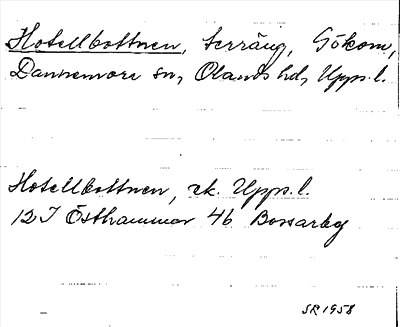 Hotellbottnen, terräng, Gökom,
Dannemora sn, Olands hd, Upps. l.
Hotellbottnen, ek. Upps. l.
12I Östhammar 4b Bossarbo
SR 1958